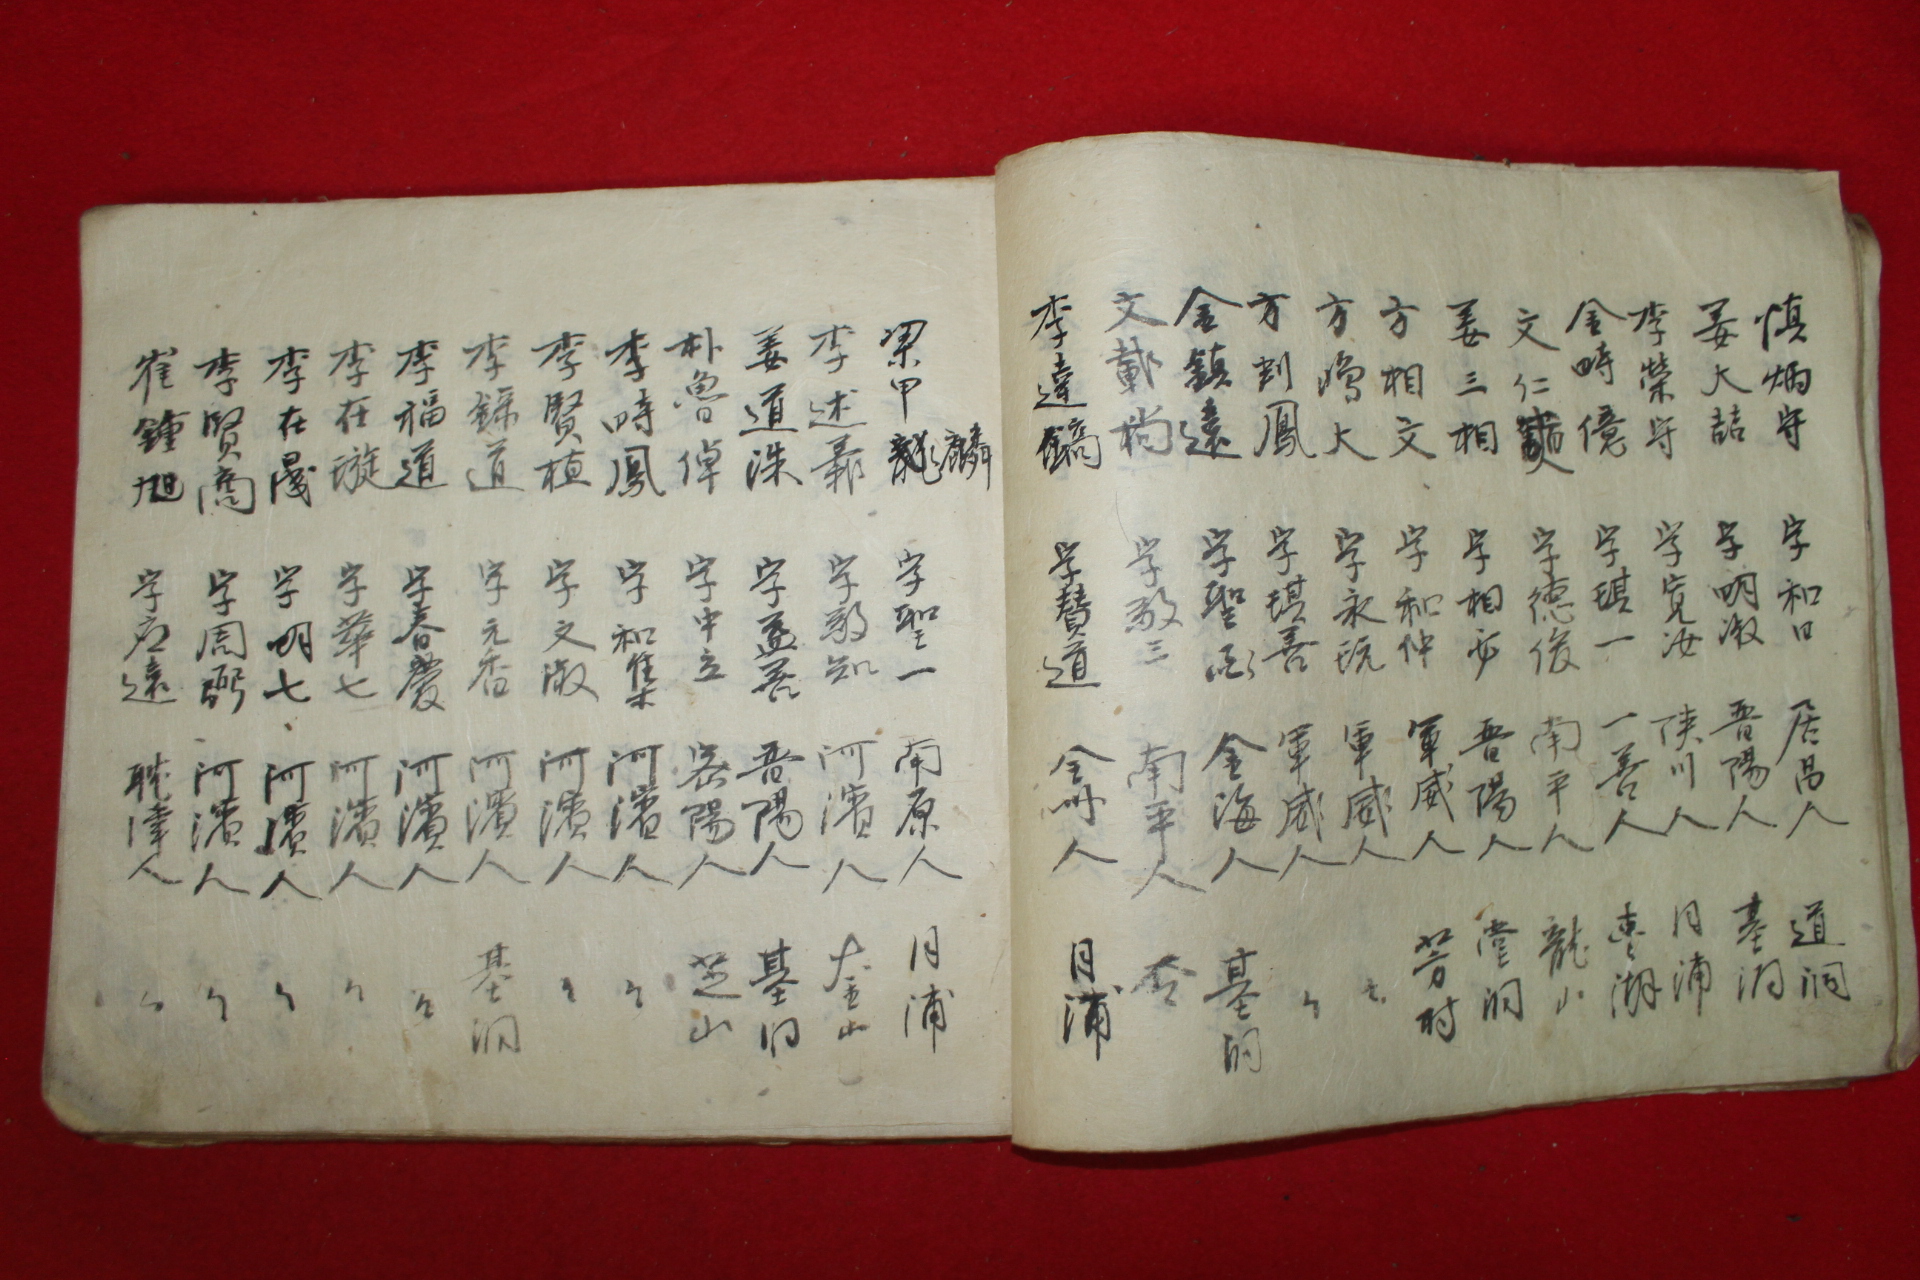 慎炳守 字和日 居昌人 道洞
姜大喆 字明淑 晋陽人 基洞
李榮守 字寬汝 陜川人 月浦
金時億 字琪一 一善人 東湖
文仁 字德俊 南平人 龍山
姜三相 字相必 晋陽人 堂洞
方相文 字和仲 軍威人 芳村
方鳴大 字永玩 軍威人 〃
方利鳳 字琪善 軍威人 〃
金鎮遠 字聖 金海人 基洞
文載尚 字敬三 南平人 仝
李達鎬 字賛道 全州人 月浦
梁甲龍 麟 字聖一 南原人 月浦
李述義 字敬知 河濱人 金山
姜道洙 字益善 晋陽人 基洞
朴魯倬 字中立 密陽人 芝山
李時鳳 字和集 河濱人 〃
李賢植 字文淑 河濱人 〃
李錄道 字元香 河濱人 基洞
李福道 字春慶 河濱人 〃
李在璇 字華七 河濱人 〃
李在晟 字明七 河濱人 〃
李賢商 字周弼 河濱人 〃
崔鍾旭 字應遠 人 〃